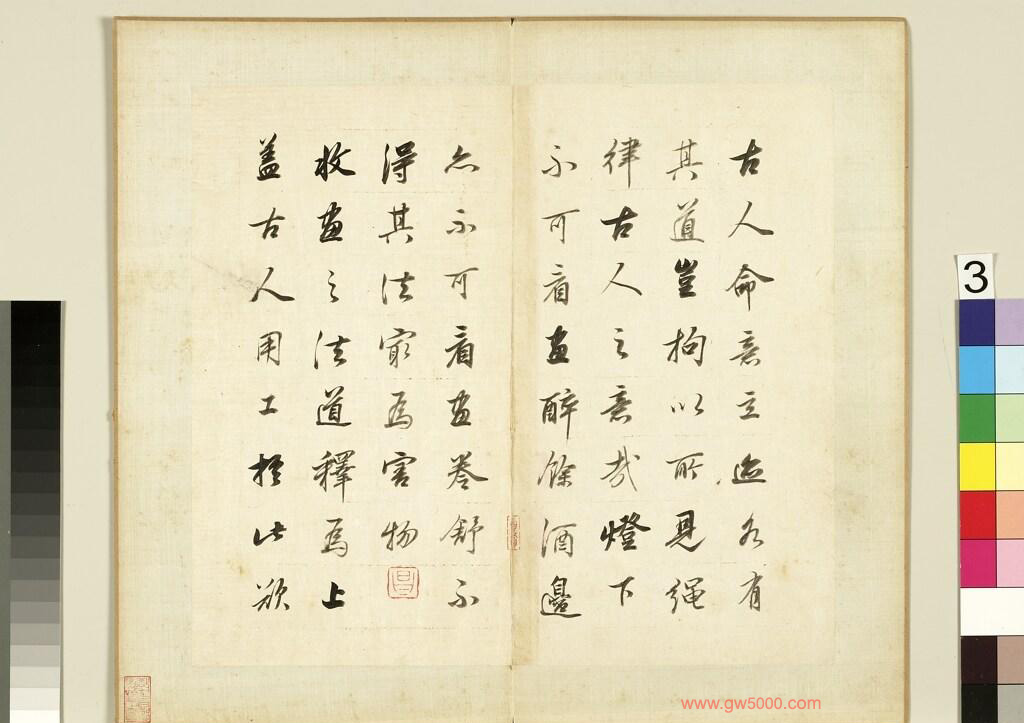 古人命意立迹各有
其道豈拘以所見繩
律古人之意哉燈下
不可看畫醉餘酒邊
亦不可看畫卷舒不
得其法最為害物
收畫之法道釋為上
蓋古人用工於此欲
昌
3
www.gw5000.com